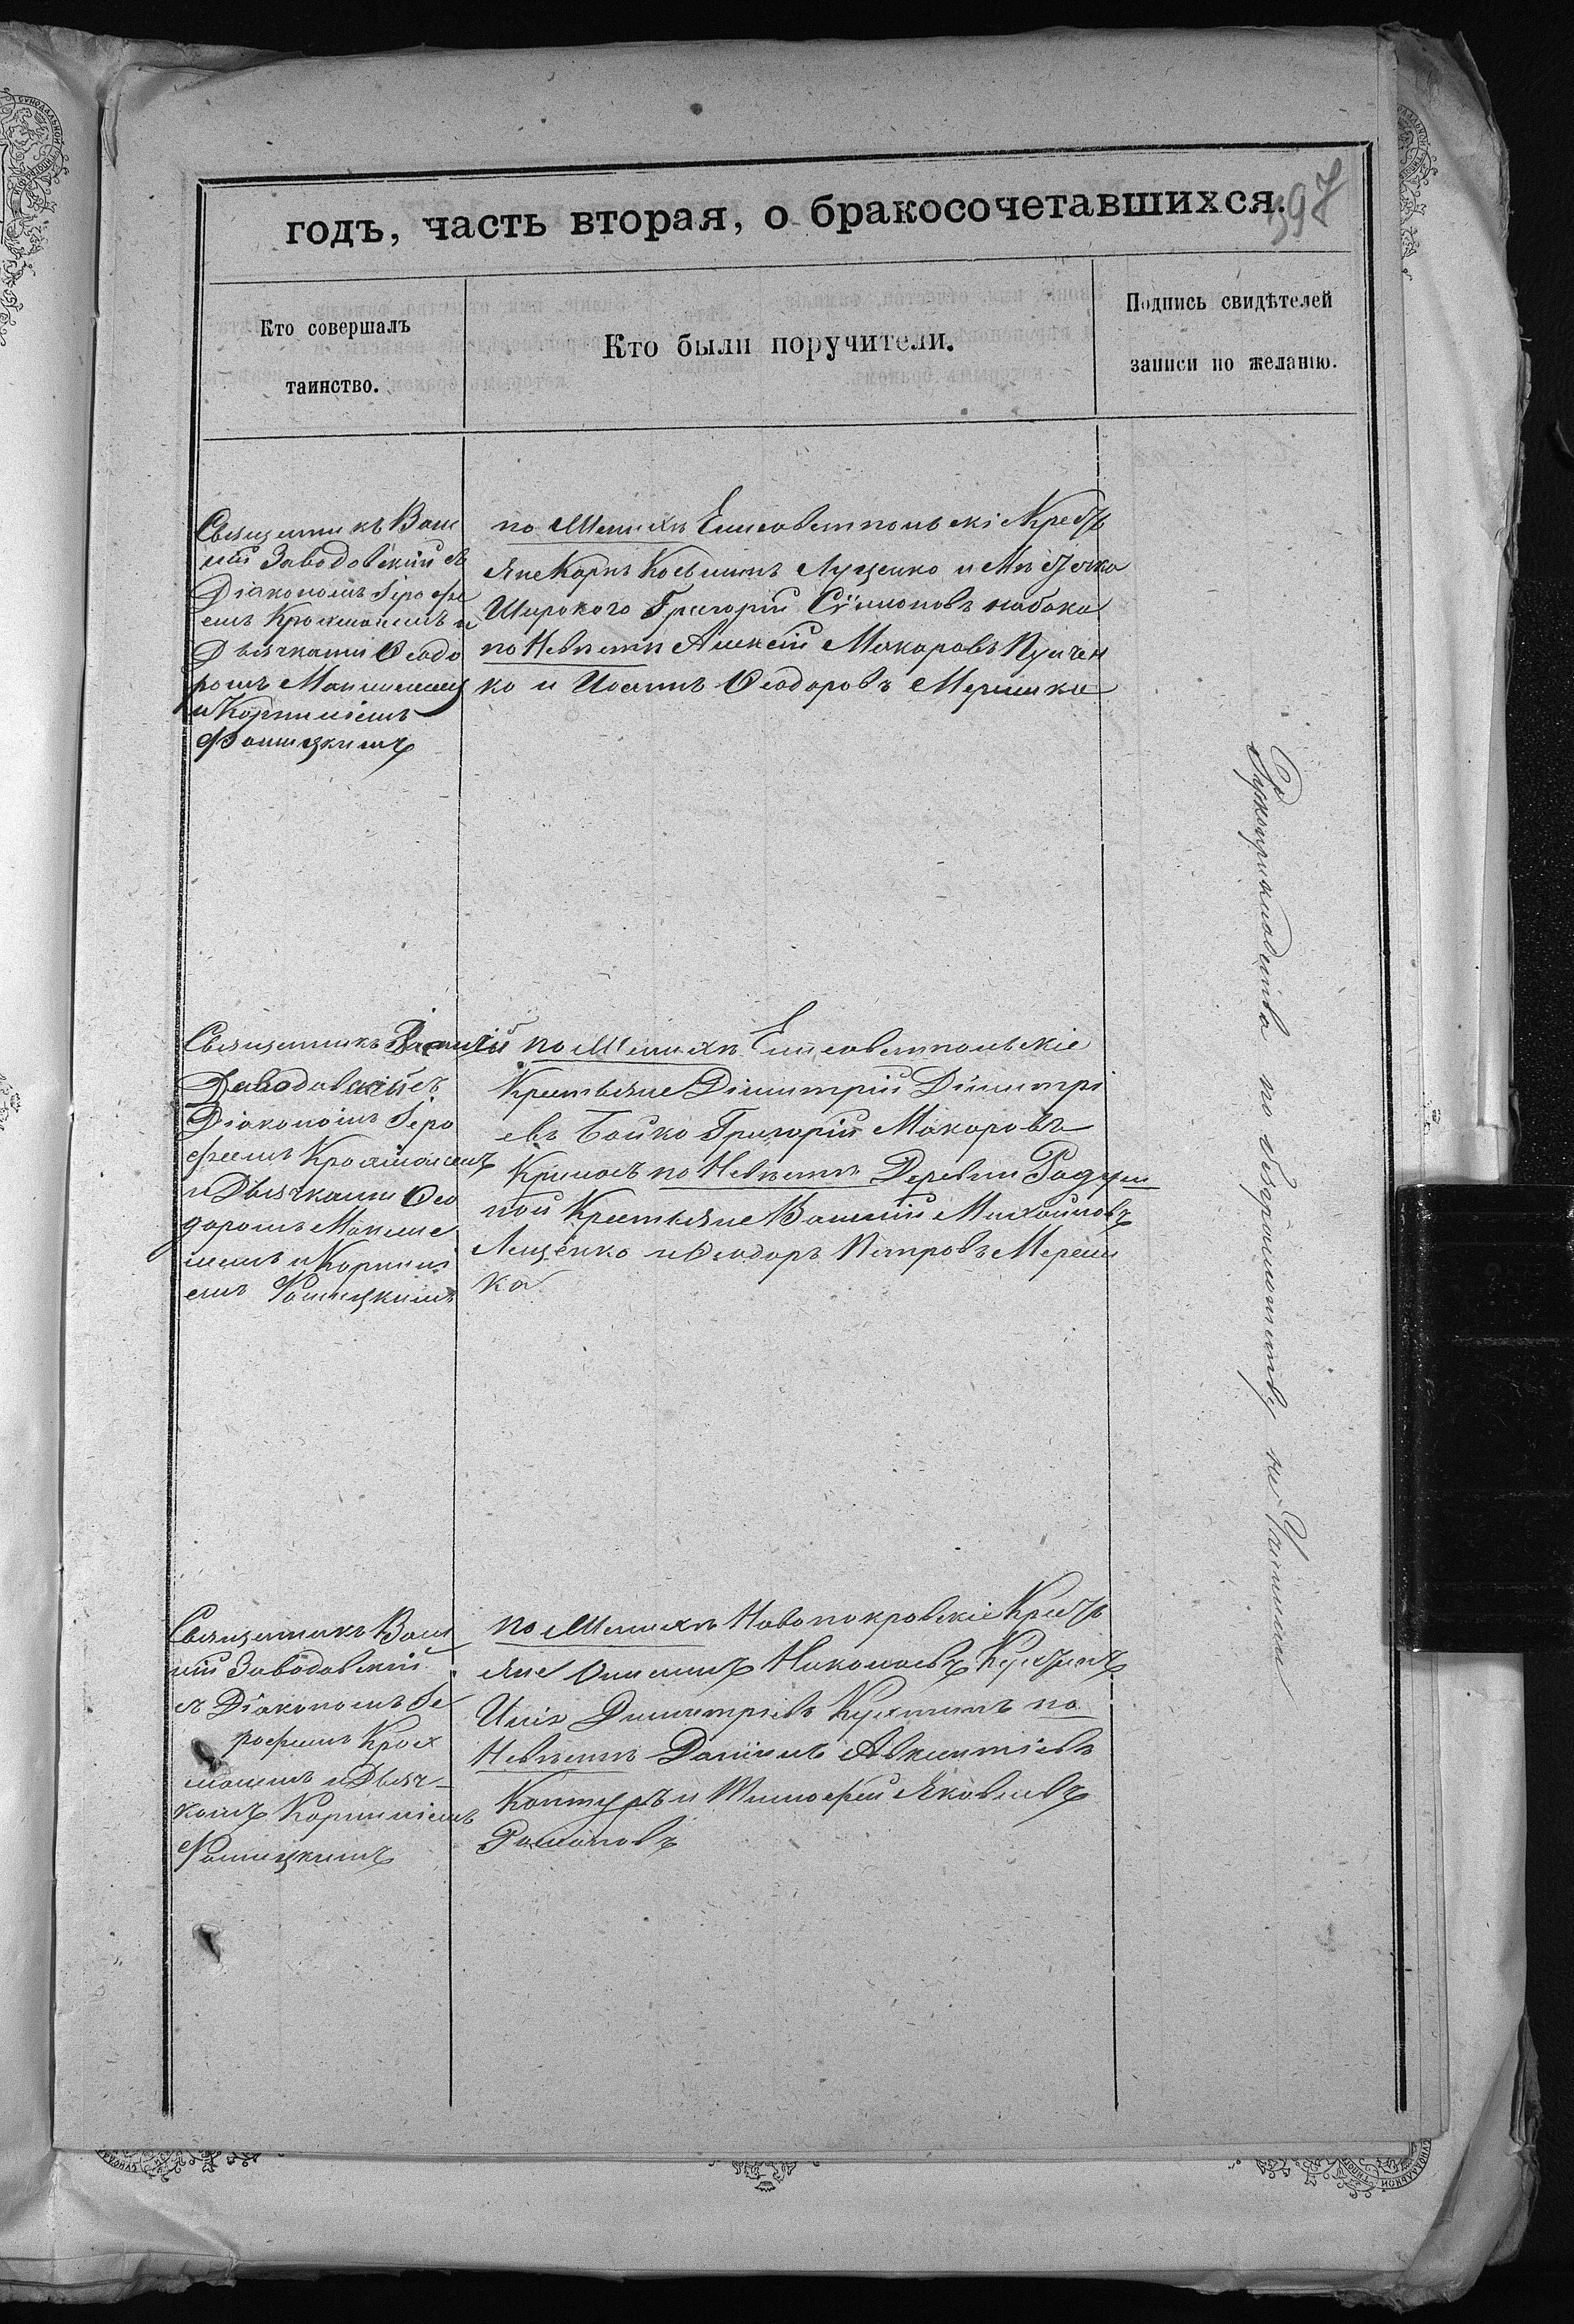 годъ, часть вторая, о бракосочетавшихся.
397
Кто совершалъ
таинство.
Кто были поручители.
Подпись свидѣтелей
записи по желанію.
Священникъ Васи
лій Заводовскій съ
Діакономъ Іерофе
емъ Крохмалемъ и
Дьячками Ѳеодо
ромъ
и Корниліемъ
Фомицкимъ
по Женихѣ Елисаветпольскі Крест
яне Карпъ Косьминъ Луценко и Мѣстечка
Широкаго Григорій Сѵмоновъ Набока
по Невѣстѣ Алексій Макаровъ
ко и Иоаннъ Ѳеодоровъ Мершка
Священникъ Василій
Заводовскій съ
Діакономъ Іеро
феемъ Крохмалемъ
и Дьячками Ѳео
доромъ
и Корнилі
емъ Фомицкимъ
по Женихѣ Елисаветпольскіе
Крестьяне Димитрій Димитрі
евъ Бойко Григорій Макаровъ
по Невѣстѣ Деревни Радуш
ной Крестьяне Василій Михайловъ
Лещенко и Ѳеодоръ Петровъ Мереш
ка
Священникъ Васи
лій Заводовскій
съ Діакономъ Іе
рофеемъ Крох
малемъ и Дьяч-
комъ Корниліемъ
Фомицкимъ
по Женихѣ Новопокровскіе Крест
яне Николаевъ
Илія Димитріевъ Кухтинъ по
Невѣстѣ Даніилъ Авксентіевъ
Контуръ и Тимофей Яковлевъ
Романовъ
Рукоприкладства по безграмотству не Учинили